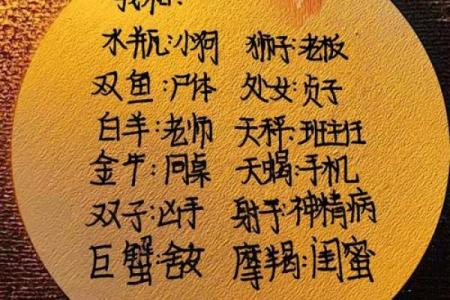 水瓶:小狗 狮子:老板
双鱼:尸体 处女:贞子
白羊:老师 天秤:班主任
金牛:同桌 天蝎:手机
双子:凶手 射手:神精病
巨蟹:舍友 摩羯:闺蜜